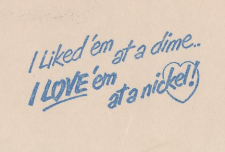 I Liked 'em at a dime..
I LOVE 'em at a nickel!